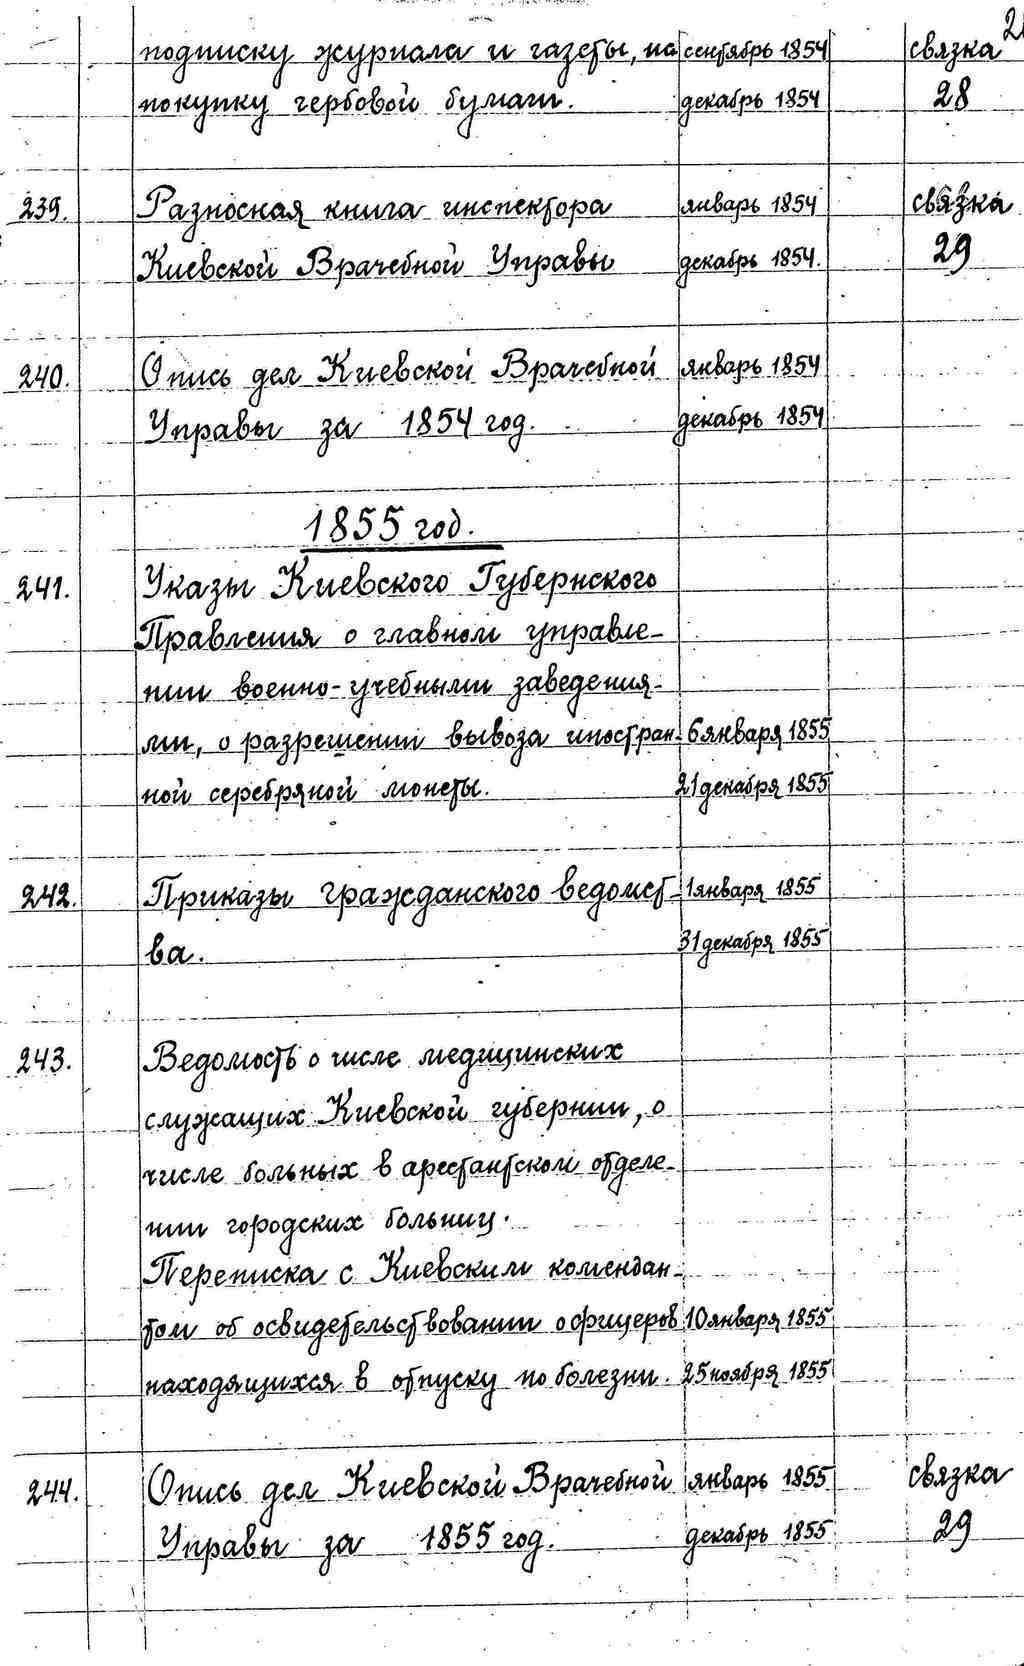 подписку журнала и газеты, на сентябрь 1854 связка
покупку гербовой бумаги. декабрь 1854 28
239. Разносная книга инспектора январь 1854 связка
Киевской Врачебной Управы декабрь 1854. 29
240. Опись дел Киевской Врачебной январь 1854
Управы за 1854 год. декабрь 1854
1855 год.
241. Указы Киевского Губернского
Правления о главном управле-
нии военно-учебными заведения-
ми, о разрешении вывоза иностран- 6 января 1855
ной серебряной монеты. 21 декабря 1855
242. Приказы гражданского ведомст- 1 января 1855
ва. 31 декабря 1855
243. Ведомость о числе медицинских
служащих Киевской губернии, о
числе больных в арестантском отделе-
нии городских больниц.
Переписка с Киевским комендан-
том об освидетельствовании офицеров 10 января 1855
находящихся в отпуску по болезни. 25 ноября 1855
244. Опись дел Киевской Врачебной январь 1855 связка
Управы за 1855 год. декабрь 1855 29